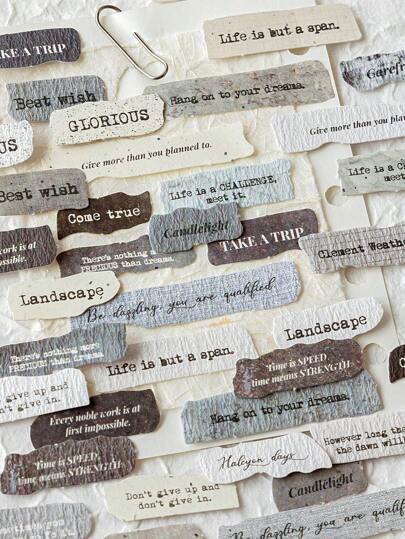 Life is but a span.
AKE A TRIP
Best wish
Hang on to your dreams.
GLORIOUS
Give more than you planned to.
Give more than you planned
Life is a CHALLENGE,
meet it.
Best wish
Come true
Candlelight
TAKE A TRIP
Clement Weathe
work is at
possible.
There's nothing
PRECIOUS than dreams.
Landscape
Be dazzling, you are qualified
Landscape
There's nothing more
PRECIOUS than dreams.
Life is but a span.
Time is SPEED,
time means STRENGTH.
give up and
don't give in.
Every noble work is at
first impossible.
Hang on to your dreams.
However long the
the dawn will
Halcyon days
Time is SPEED,
time means STRENGTH.
Don't give up and
don't give in.
Candlelight
Be dazzling, you are qu